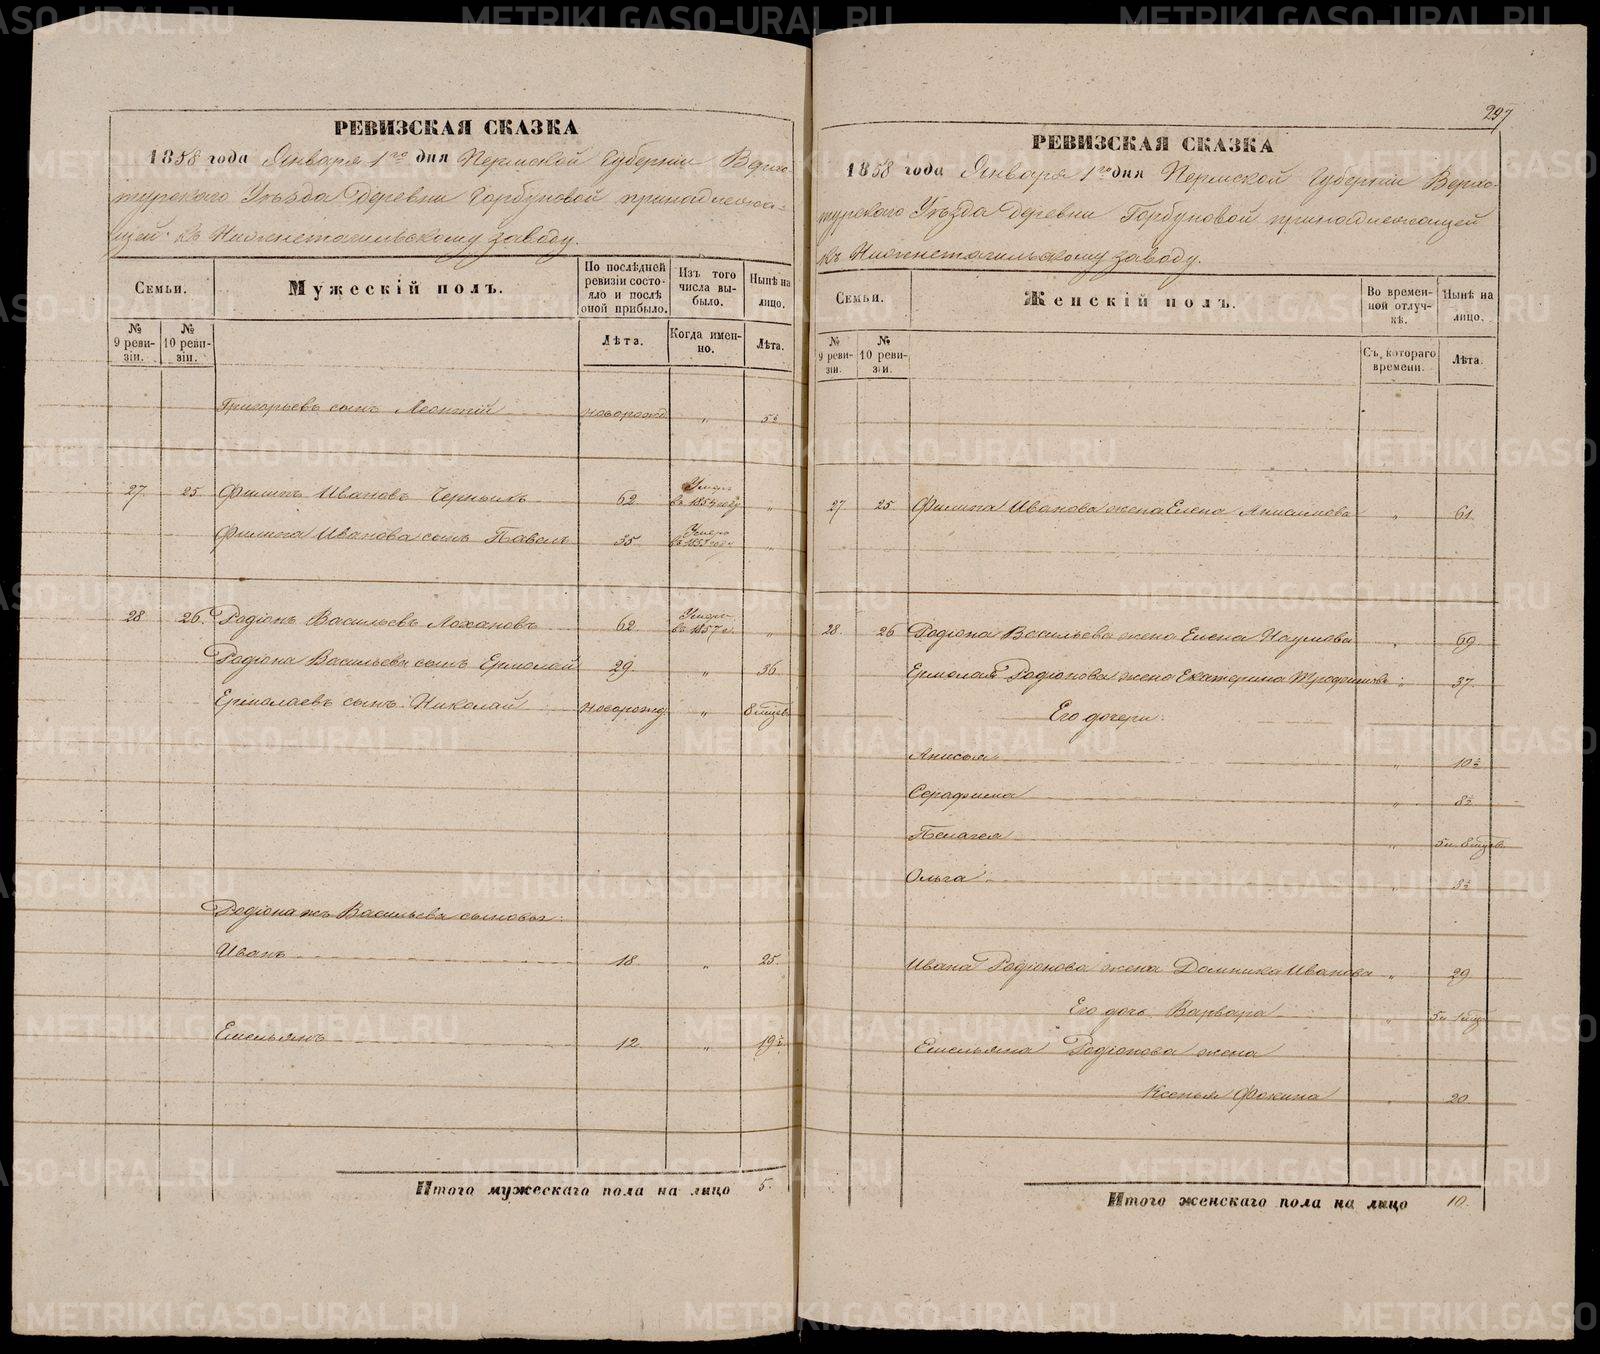 РЕВИЗСКАЯ СКАЗКА
1858 года Января 1го дня Пермской Губерніи Верхо-
турскаго Уѣзда деревни Горбуновой принадлежа-
щей къ Нижнетагильскому заводу.
Семьи.
Мужескій полъ.
По послѣдней ревизіи состояло и послѣ оной прибыло.
Изъ того числа выбыло.
Нынѣ на лицо.
№ 9 ревизіи.
№ 10 ревизіи.
Лѣта.
Когда именно.
Лѣта.
Григорьевъ сынъ Леонтій новорожд. „ 5½
27. 25 Филипъ Ивановъ Черныхъ 62 Умеръ въ 1854 году „
Филипа Иванова сынъ Павелъ 35 Умеръ „
28 26. Родіонъ Васильевъ Лохановъ 62 Умеръ въ 1857 г. „
Родіона Васильева сынъ Ермолай 29 „ 36
Ермолаевъ сынъ Николай новорожд. „ 8 мѣсяц.
Родіона жъ Васильева сыновья:
Иванъ 18 „ 25
Емельянъ 12 „ 19½
Итого мужескаго пола на лицо 5.
297
РЕВИЗСКАЯ СКАЗКА
1858 года Января 1го дня Пермской Губерніи Верхо-
турскаго Уѣзда деревни Горбуновой принадлежащей
къ Нижнетагильскому заводу.
Семьи.
Женскій полъ.
Во временной отлучкѣ.
Нынѣ на лицо.
№ 9 ревизіи.
№ 10 ревизіи.
Съ котораго времени.
Лѣта.
27 25 Филипа Иванова жена Елена Анисимова „ 61
28. 26 Родіона Васильева жена Елена Наумова „ 69
Ермолая Родіонова жена Екатерина Трофимова „ 37
Его дочери:
Анисья „ 10½
Серафима „ 8½
Пелагея „ 5 и 8 мѣсяц.
Ольга „ 3½
Ивана Родіонова жена Домника Иванова „ 29
Его дочь Варвара „
Емельяна Родіонова жена
Ксенья Фокина „ 20
Итого женскаго пола на лицо 10.
METRIKI.GASO-URAL.RU